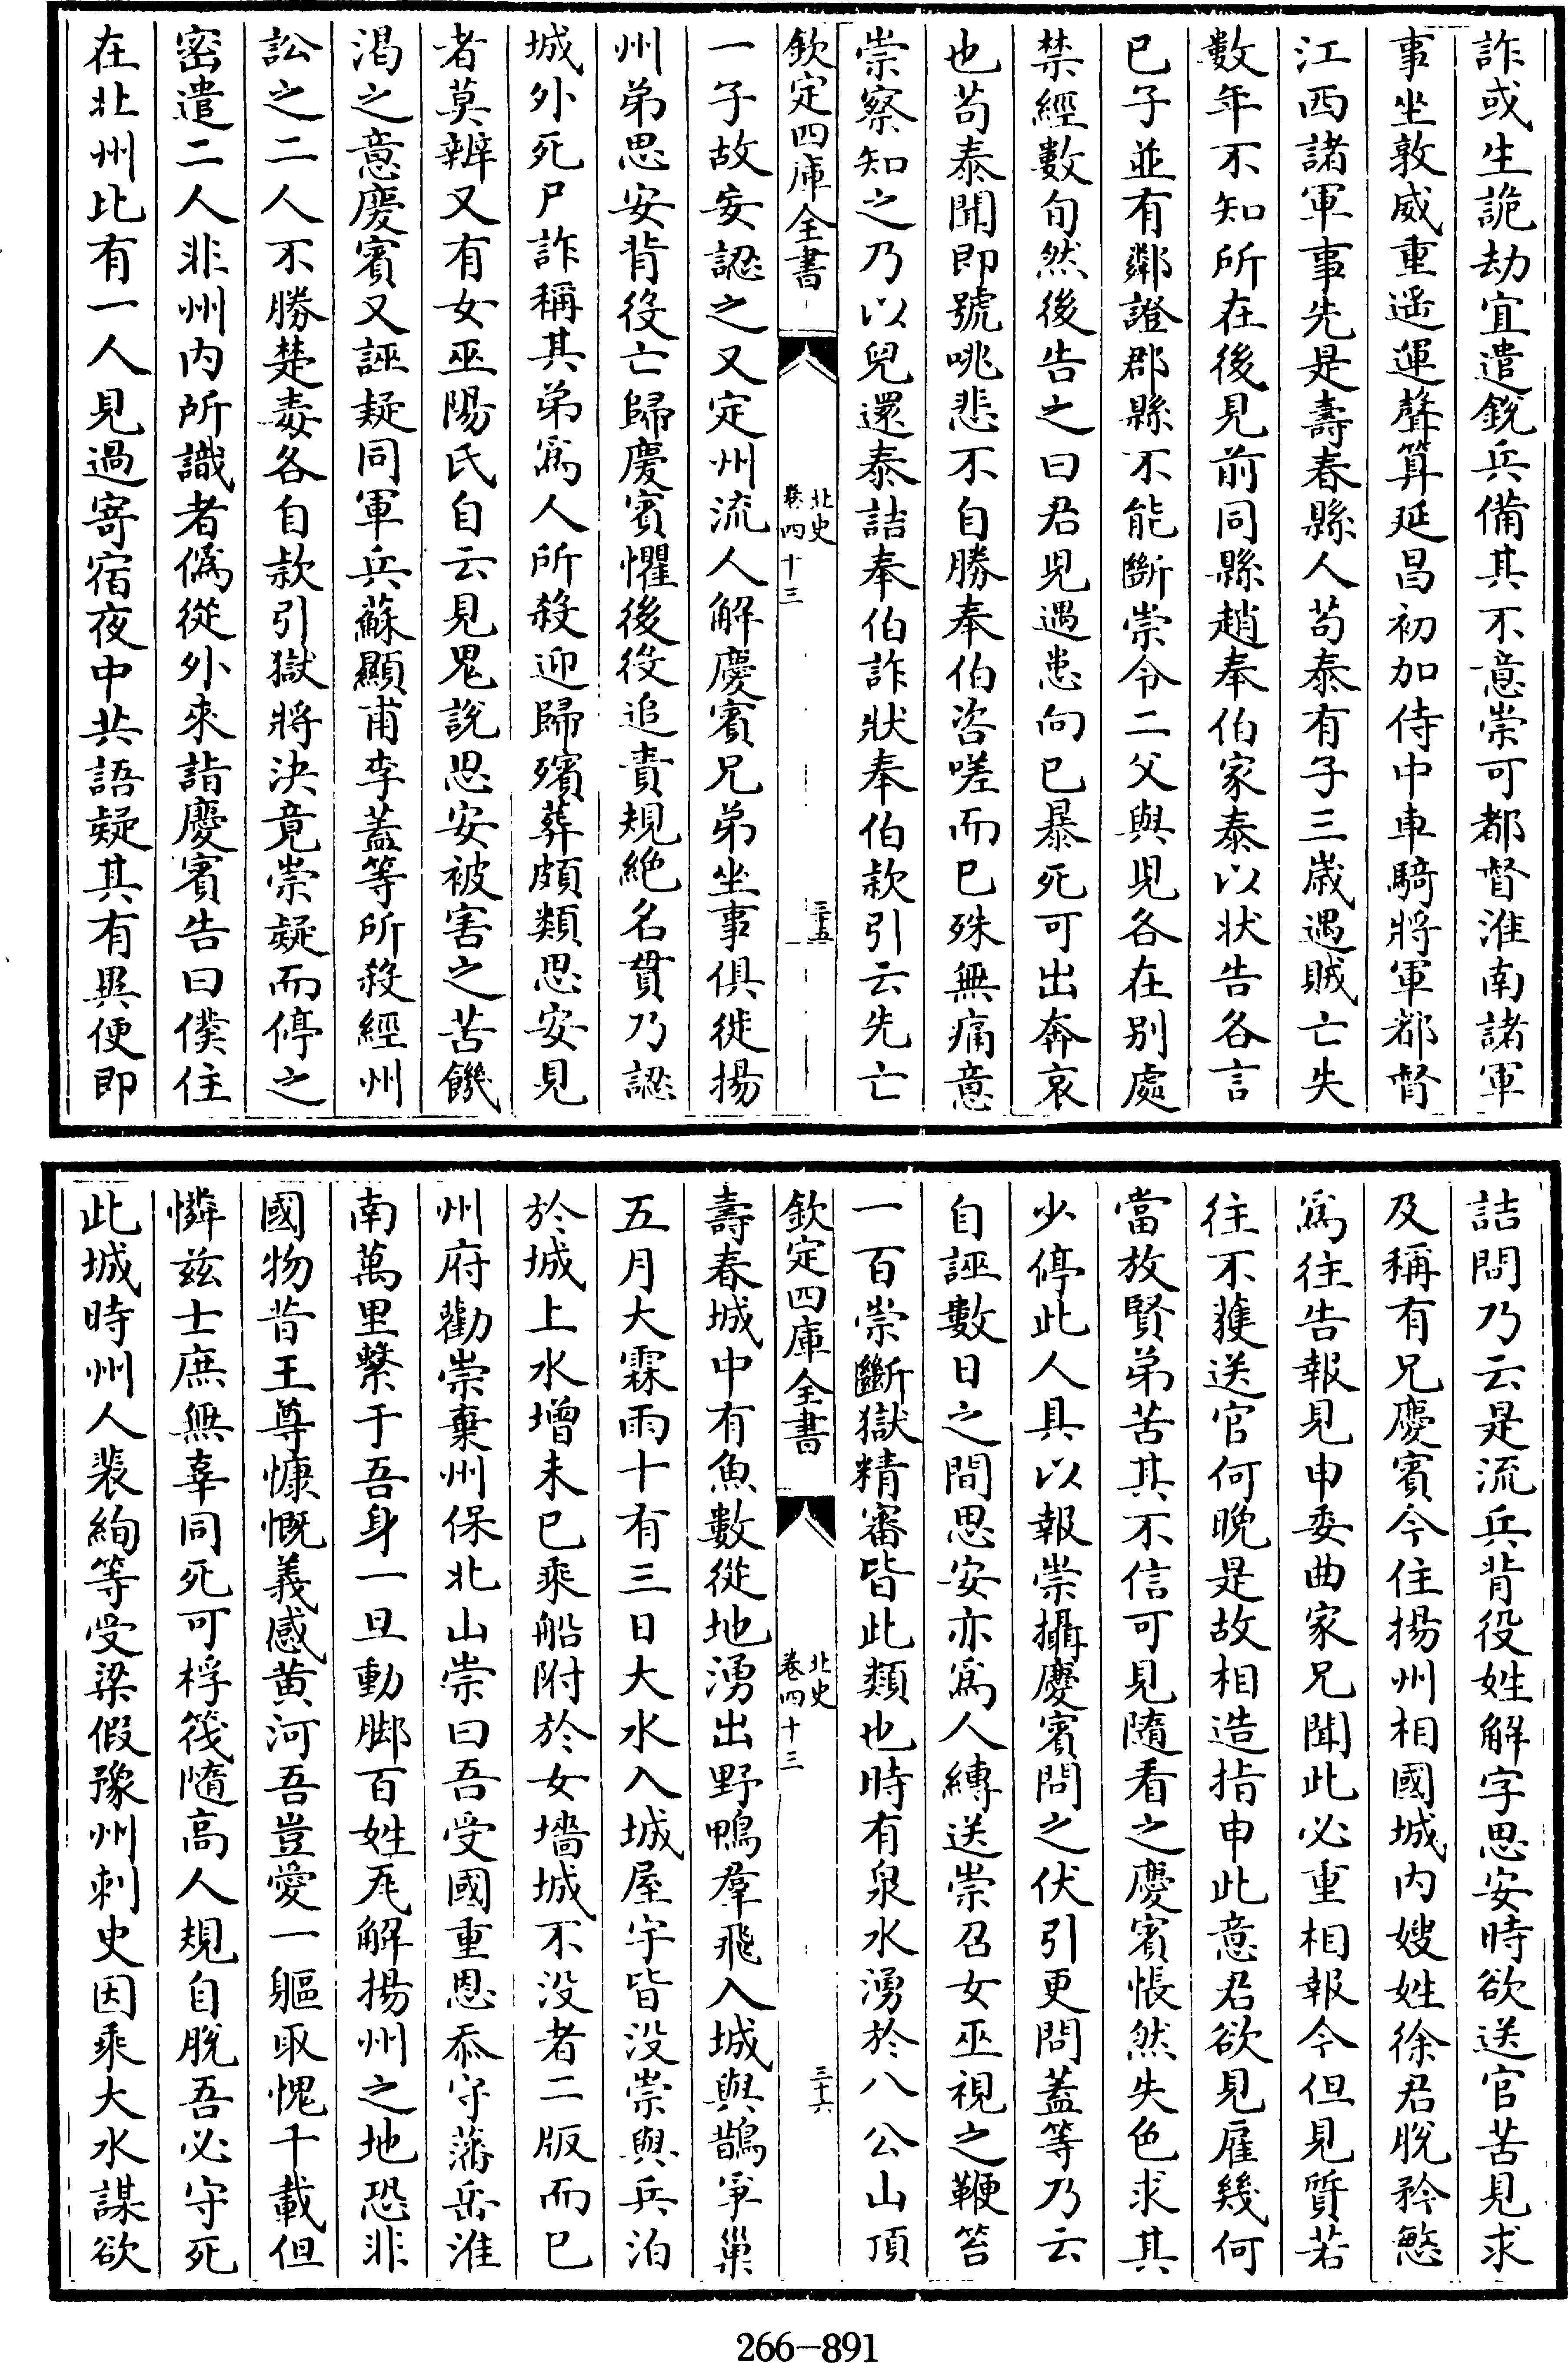 詐或生詭劫宜遣鋭兵備其不意崇可都督淮南諸軍
事坐敦威重遥運聲算延昌初加侍中車騎將軍都督
江西諸軍事先是壽春縣人苟泰有子三歲遇賊亡失
數年不知所在後見前同縣趙奉伯家泰以狀告各言
已子並有鄰證郡縣不能斷崇令二父與兒各在别處
禁經數旬然後告之曰君兒遇患向已暴死可出奔哀
也苟泰聞即號咷悲不自勝奉伯咨嗟而已殊無痛意
崇察知之乃以兒還泰詰奉伯詐狀奉伯款引云先亡
欽定四庫全書
北史
卷四十三
三十五
一子故妄認之又定州流人解慶賓兄弟坐事俱徙揚
州弟思安背役亡歸慶賓懼後役追責規絶名貫乃認
城外死尸詐稱其弟爲人所殺迎歸殯葬頗類思安見
者莫辨又有女巫陽氏自云見鬼說思安被害之苦饑
渇之意慶賓又誣疑同軍兵蘇顯甫李蓋等所殺經州
訟之二人不勝楚毒各自款引獄將決竟崇疑而停之
密遣二人非州内所識者僞從外來詣慶賓告曰僕住
在北州比有一人見過寄宿夜中共語疑其有異便即
詰問乃云是流兵背役姓解字思安時欲送官苦見求
及稱有兄慶賓今住揚州相國城内嫂姓徐君脱矜慜
爲往告報見申委曲家兄聞此必重相報今但見質若
往不獲送官何晚是故相造指申此意君欲見雇幾何
當放賢弟苦其不信可見隨看之慶賓悵然失色求其
少停此人具以報崇攝慶賓問之伏引更問蓋等乃云
自誣數日之間思安亦爲人縛送崇召女巫視之鞭笞
一百崇斷獄精審皆此類也時有泉水湧於八公山頂
欽定四庫全書
北史
卷四十三
三十六
壽春城中有魚數從地湧出野鴨羣飛入城與鵲爭巢
五月大霖雨十有三日大水入城屋宇皆没崇與兵泊
於城上水增未已乘船附於女墻城不没者二版而已
州府勸崇棄州保北山崇曰吾受國重恩忝守藩岳淮
南萬里繫于吾身一旦動脚百姓瓦解揚州之地恐非
國物昔王尊慷慨義感黄河吾豈愛一軀取愧千載但
憐兹士庶無辜同死可桴筏隨高人規自脱吾必守死
此城時州人裴絢等受梁假豫州刺史因乘大水謀欲
266-891